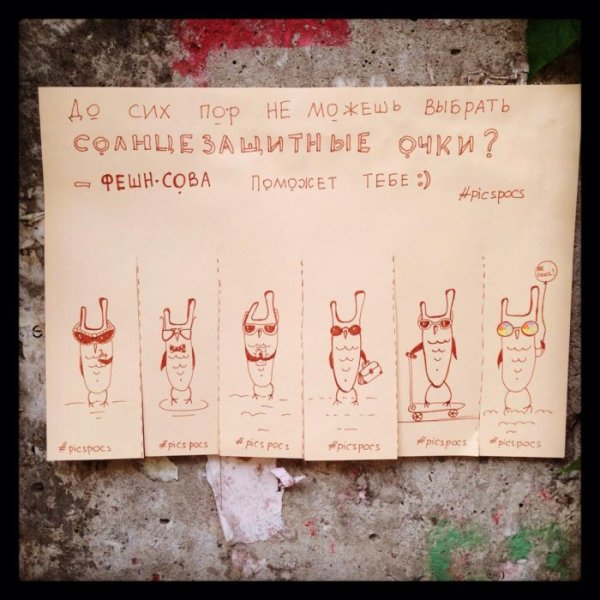 ДО СИХ ПОР НЕ МОЖЕШЬ ВЫБРАТЬ
СОЛНЦЕЗАЩИТНЫЕ ОЧКИ?
- ФЕШН-СОВА ПОМОЖЕТ ТЕБЕ :)
#picspocs
BE COOL!
#picspocs #picspocs #picspocs #picspocs #picspocs #picspocs